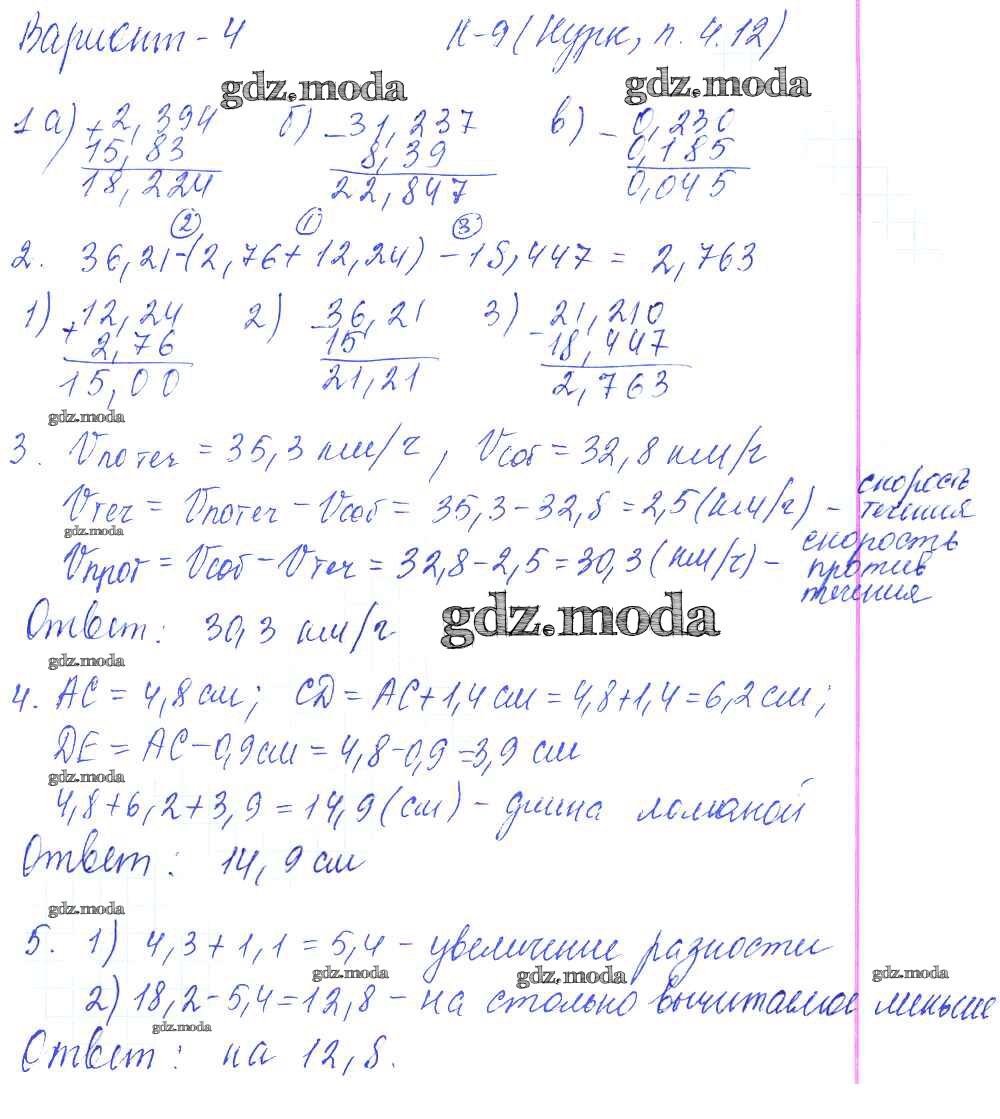 Вариант - 4 К-9 (Нурк, п. 4.12)
gdz.moda gdz.moda
1 а) + 2,394 б) - 31,237 в) - 0,230
15,83 8,39 0,185
18,224 22,847 0,045
② ① ③
2. 36,21-(2,76+12,24) - 18,447 = 2,763
1) + 12,24 2) - 36,21 3) - 21,210
2,76 15 18,447
15,00 21,21 2,763
gdz.moda
3. Vпотеч = 35,3 км/ч, Vсоб = 32,8 км/ч
Vтеч = Vпотеч - Vсоб = 35,3-32,8 = 2,5 (км/ч) - скорость течения
gdz.moda
Vпрот = Vсоб - Vтеч = 32,8-2,5 = 30,3 (км/ч) - скорость против течения
Ответ: 30,3 км/ч
gdz.moda
gdz.moda
4. AC = 4,8 см; CD = AC+1,4 см = 4,8+1,4 = 6,2 см;
DE = AC-0,9 см = 4,8-0,9 = 3,9 см
gdz.moda
4,8+6,2+3,9 = 14,9 (см) - длина ломаной
Ответ: 14,9 см
gdz.moda
5. 1) 4,3+1,1 = 5,4 - увеличение разности
gdz.moda gdz.moda gdz.moda
2) 18,2-5,4 = 12,8 - на столько вычитаемое меньше
gdz.moda
Ответ: на 12,8.